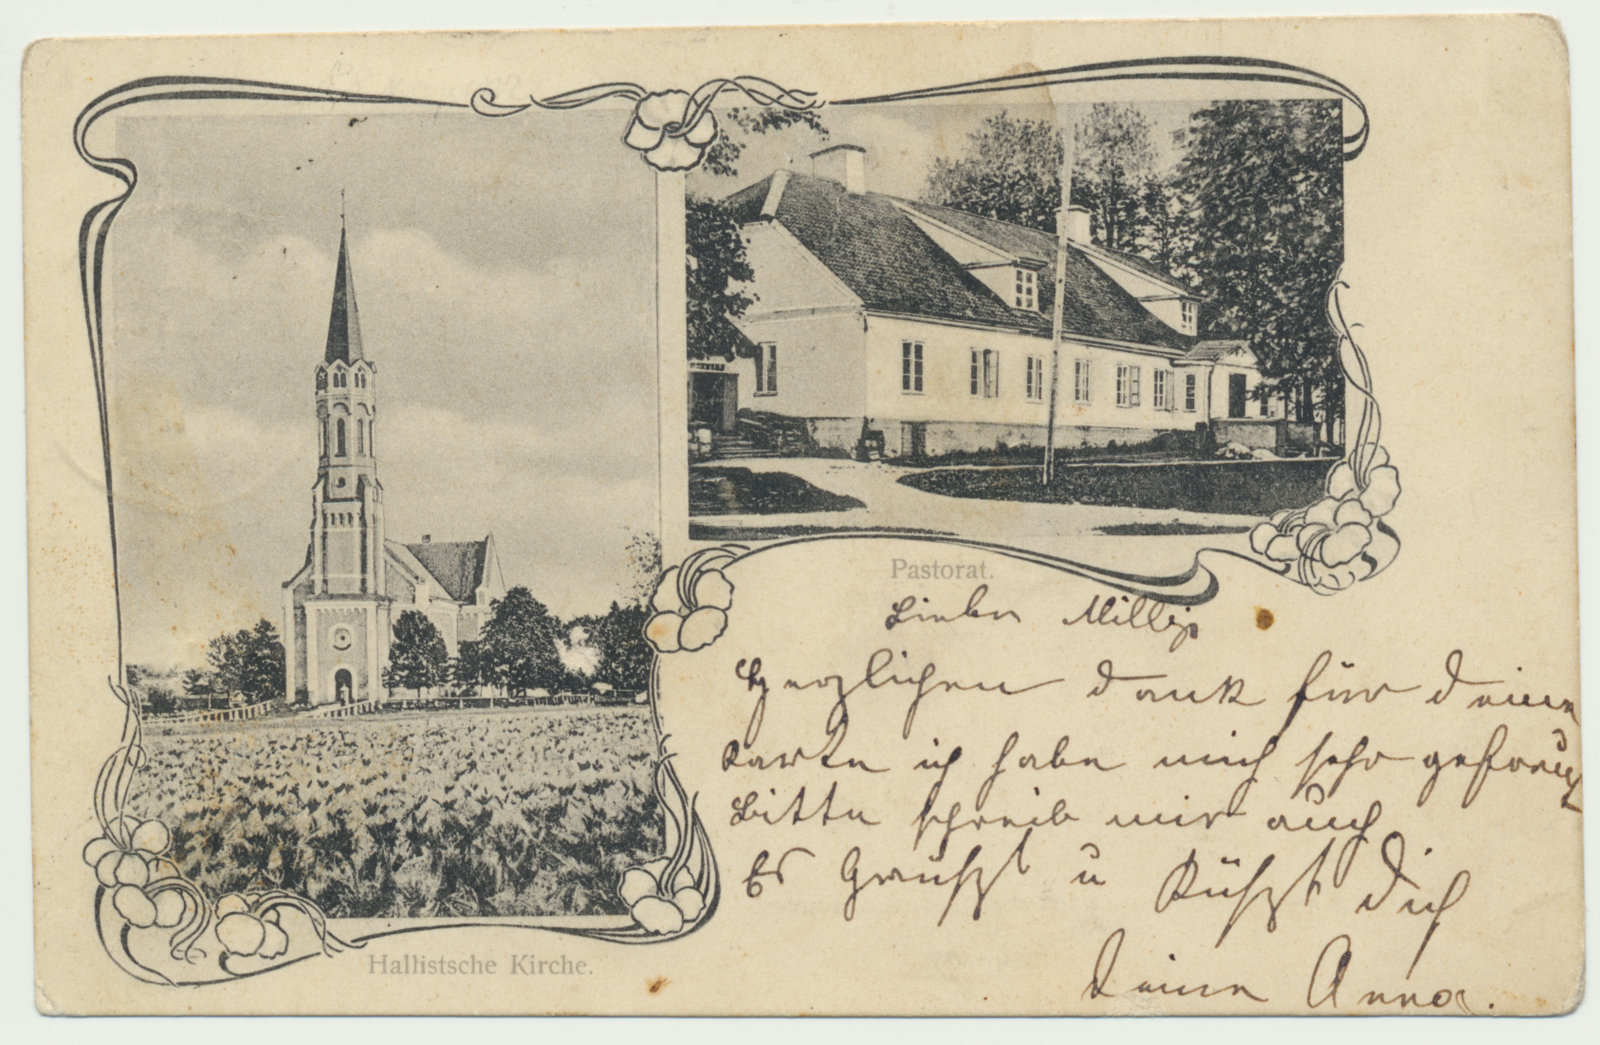 Pastorat.
Liebe Milly
Herzlichen Dank für deine
Karte ich habe mich sehr gefreut
Bitte schreib mir auch
Es Grüßt u Küßt Dich
Deine Anna.
Hallistsche Kirche.